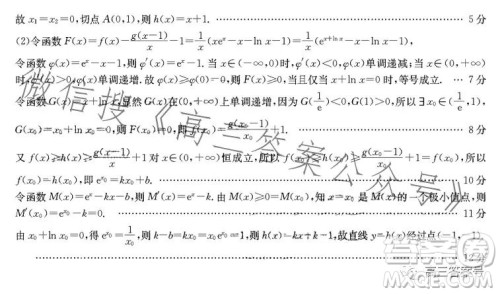 故 x₁=x₂=0,切点 A(0,1),则 h(x)=x+1. …… 5分
(2)令函数 F(x)=f(x)-g(x-1)/x-1=1/x(xeˣ-x-ln x-1)=1/x(e^(x+ln x)-x-ln x-1),
令函数 φ(x)=eˣ-x-1,则 φ′(x)=eˣ-1. 当 x∈(-∞,0)时,φ′(x)<0,φ(x)单调递减;当 x∈(0,+∞)
时,φ′(x)>0,φ(x)单调递增. 故 φ(x)≥φ(0)=0,则 F(x)≥0,当且仅当 x+ln x=0 时,等号成立. … 7分
令函数 G(x)=x+ln x,显然 G(x)在(0,+∞)上单调递增,因为 G(1/e)<0,G(1)>0,所以∃x₀∈(1/e,1),
G(x₀)=x₀+ln x₀=0,则 F(x₀)=0,即 f(x₀)=g(x₀-1)/x₀+1. …… 8分
又 f(x)≥h(x)≥g(x-1)/x+1 对 x∈(0,+∞)恒成立,所以 f(x₀)≥h(x₀)≥g(x₀-1)/x₀+1=f(x₀),所以
f(x₀)=h(x₀),即 e^x₀=kx₀+b. …… 10分
令函数 M(x)=eˣ-kx-b,则 M′(x)=eˣ-k. 由 M(x)≥0=M(x₀),知 x=x₀ 是 M(x)的一个极小值点,则
M′(x₀)=e^x₀-k=0. …… 11分
由 x₀+ln x₀=0,得 e^x₀=1/x₀,则 k-b=kx₀=x₀e^x₀=1,则 h(x)=kx+k-1,故直线 y=h(x)经过点(-1,-1).
…… 12分
微信搜《高三答案公众号》
高三答案号